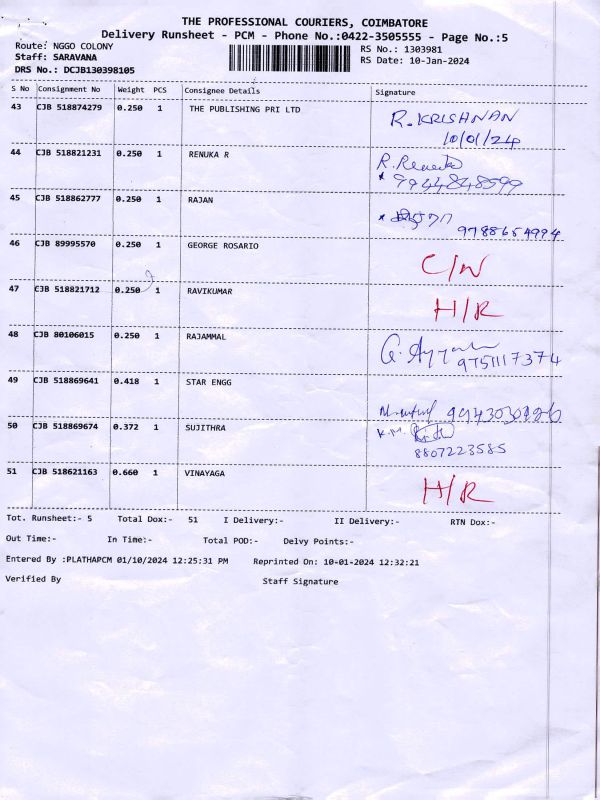 THE PROFESSIONAL COURIERS, COIMBATORE
Delivery Runsheet - PCM - Phone No.:0422-3505555 - Page No.:5
Route: NGGO COLONY
RS No.: 1303981
Staff: SARAVANA
RS Date: 10-Jan-2024
DRS No.: DCJB130398105
S No Consignment No Weight PCS Consignee Details Signature
43 CJB 518874279 0.250 1 THE PUBLISHING PRI LTD R. KRISHNAN
10/01/24
44 CJB 518821231 0.250 1 RENUKA R R. Renuka
* 9944848599
45 CJB 518862777 0.250 1 RAJAN *
9788654994
46 CJB 89995570 0.250 1 GEORGE ROSARIO C/N
47 CJB 518821712 0.250 1 RAVIKUMAR H/R
48 CJB 80106015 0.250 1 RAJAMMAL G.
9751117374
49 CJB 518869641 0.418 1 STAR ENGG
50 CJB 518869674 0.372 1 SUJITHRA K.M.
8807223585
51 CJB 518621163 0.660 1 VINAYAGA H/R
Tot. Runsheet:- 5 Total Dox:- 51 I Delivery:- II Delivery:- RTN Dox:-
Out Time:- In Time:- Total POD:- Delvy Points:-
Entered By :PLATHAPCM 01/10/2024 12:25:31 PM Reprinted On: 10-01-2024 12:32:21
Verified By Staff Signature